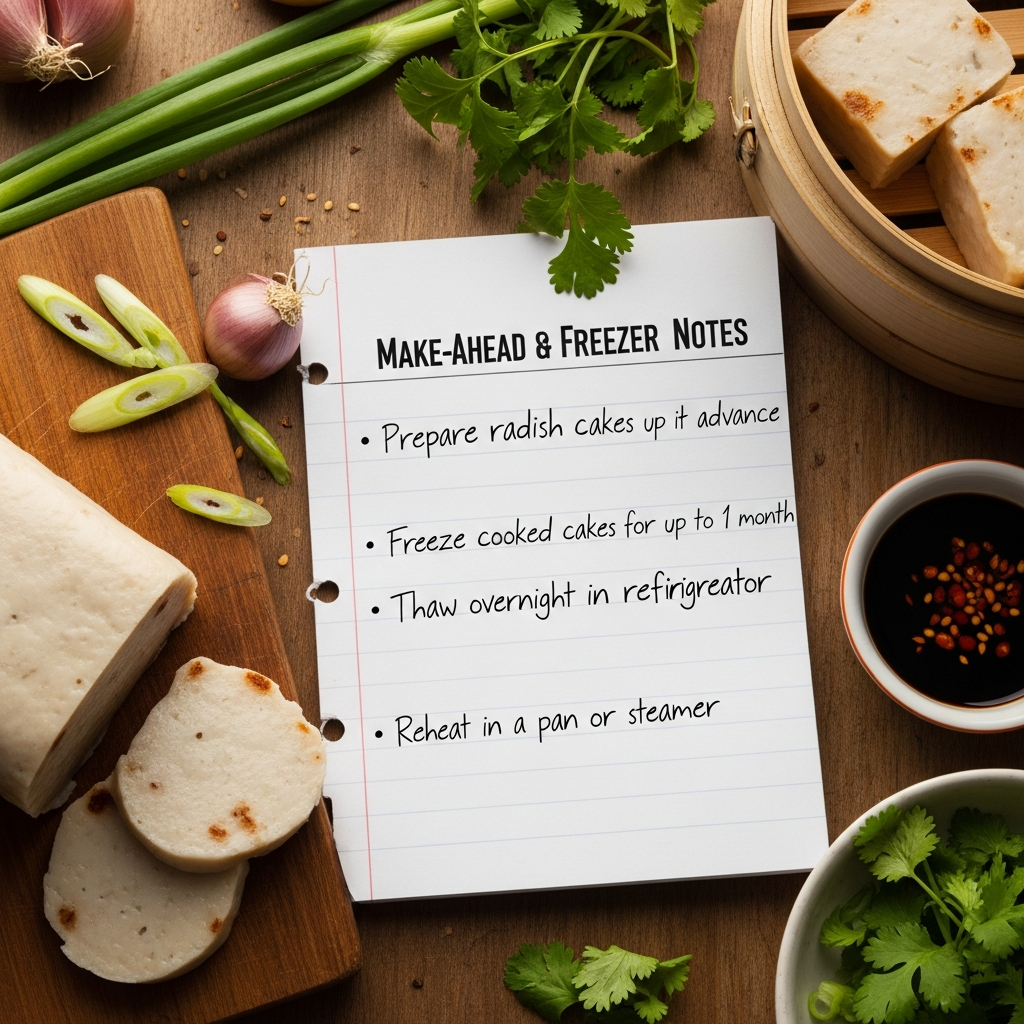 MAKE-AHEAD & FREEZER NOTES
• Prepare radish cakes up it advance
• Freeze cooked cakes for up to 1 month
• Thaw overnight in refirigreator
• Reheat in a pan or steamer